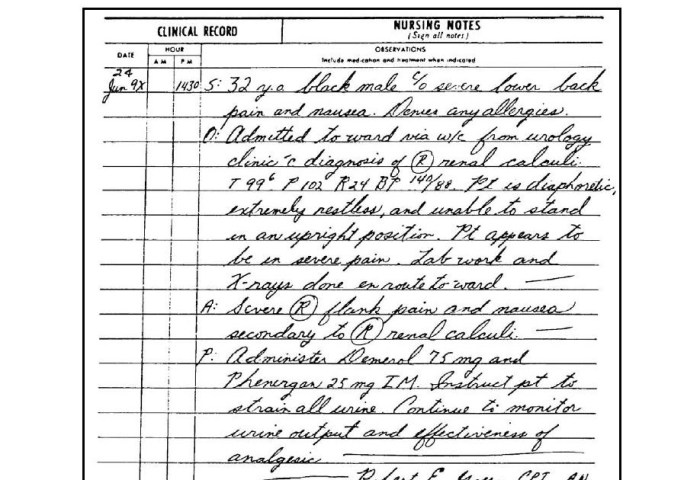 CLINICAL RECORD
NURSING NOTES
(Sign all notes)
DATE
HOUR
A M
P M
OBSERVATIONS
Include medication and treatment when indicated
24
Jun 9X 1430 S: 32 y.o black male c/o severe lower back
pain and nausea. Denies any allergies.
O: Admitted to ward via w/c from urology
clinic c̄ diagnosis of Ⓡ renal calculi.
T 99⁶ P 102 R 24 BP 140/88. Pt is diaphoretic,
extremely restless, and unable to stand
in an upright position. Pt appears to
be in severe pain. Lab work and
X-rays done en route to ward.
A: Severe Ⓡ flank pain and nausea
secondary to Ⓡ renal calculi.
P: Administer Demerol 75 mg and
Phenergan 25 mg I.M. Instruct pt to
strain all urine. Continue to monitor
urine output and effectiveness of
analgesic
Robert E. CPT, AN